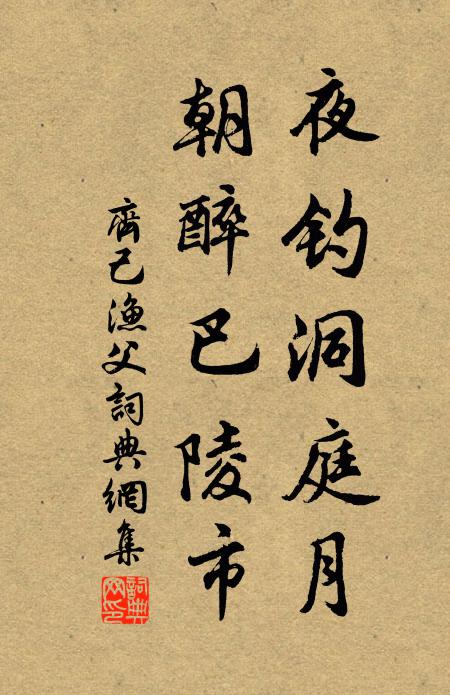 夜钓洞庭月
朝醉巴陵市
齊己漁父詞典網集
詞典网印